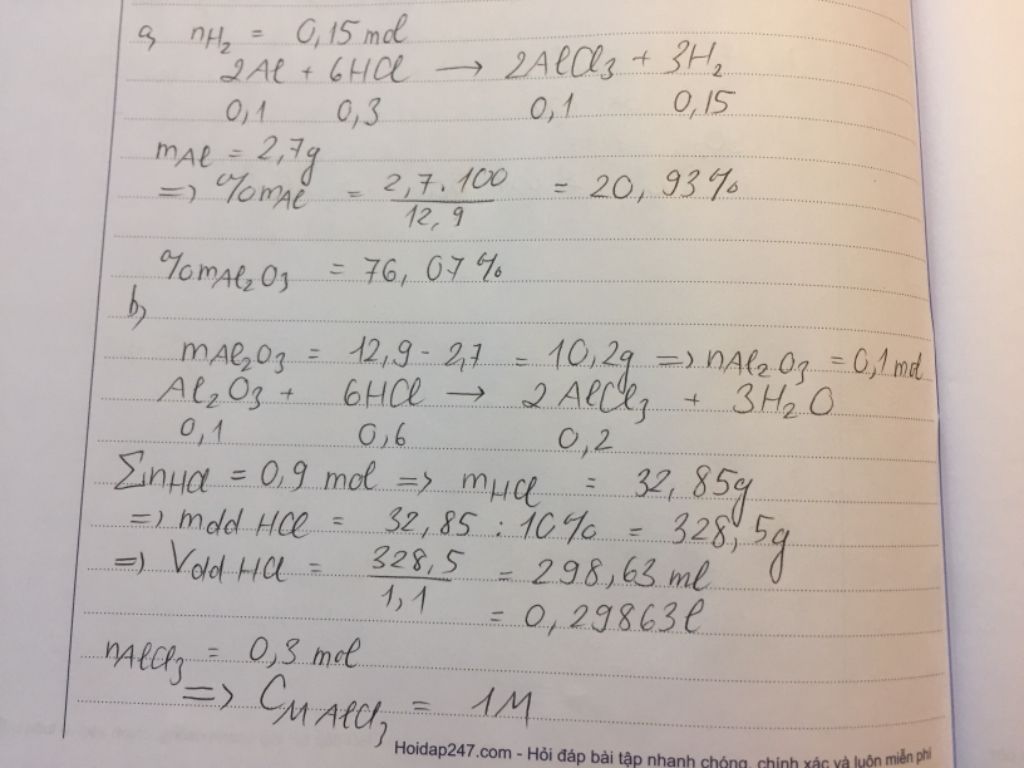 a, nH₂ = 0,15 mol
2Al + 6HCl → 2AlCl₃ + 3H₂
0,1 0,3 0,1 0,15
mAl = 2,7g
=> %mAl = 2,7.100 / 12,9 = 20,93%
%mAl₂O₃ = 76,07%
b,
mAl₂O₃ = 12,9 - 2,7 = 10,2g => nAl₂O₃ = 0,1 mol
Al₂O₃ + 6HCl → 2AlCl₃ + 3H₂O
0,1 0,6 0,2
ΣnHCl = 0,9 mol => mHCl = 32,85g
=> mdd HCl = 32,85 : 10% = 328,5g
=> Vdd HCl = 328,5 / 1,1 = 298,63 ml
= 0,29863l
nAlCl₃ = 0,3 mol
=> CM AlCl₃ = 1M
Hoidap247.com - Hỏi đáp bài tập nhanh chóng, chính xác và luôn miễn phí